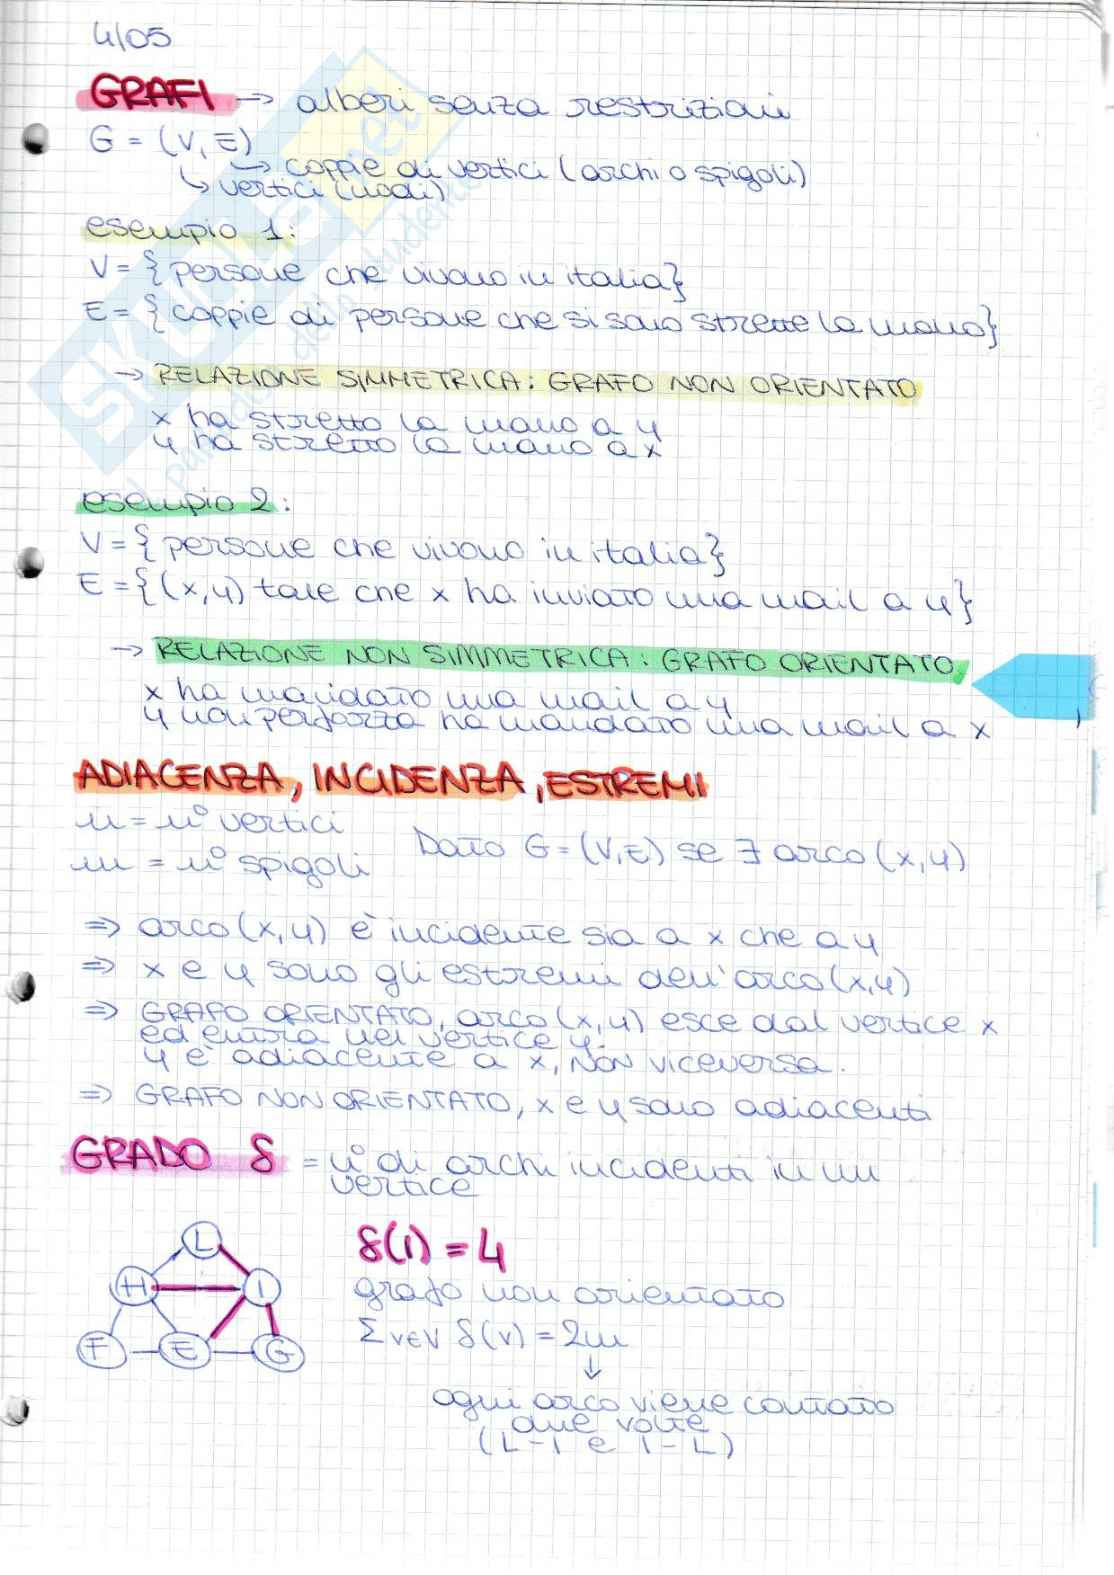 4/05
GRAFI → alberi senza restrizioni
G = (V, E)
↳ coppie di vertici (archi o spigoli)
↳ vertici (nodi)
esempio 1:
V = {persone che vivono in italia}
E = {coppie di persone che si sono strette la mano}
→ RELAZIONE SIMMETRICA: GRAFO NON ORIENTATO
x ha stretto la mano a y
y ha stretto la mano a x
esempio 2:
V = {persone che vivono in italia}
E = {(x,y) tale che x ha inviato una mail a y}
→ RELAZIONE NON SIMMETRICA: GRAFO ORIENTATO
x ha mandato una mail a y
y non per forza ha mandato una mail a x
ADIACENZA, INCIDENZA, ESTREMI
n = n° vertici
m = n° spigoli
Dato G = (V,E) se ∃ arco (x,y)
⇒ arco (x,y) è incidente sia a x che a y
⇒ x e y sono gli estremi dell'arco (x,y)
⇒ GRAFO ORIENTATO, arco (x,y) esce dal vertice x
ed entra nel vertice y.
y è adiacente a x, NON viceversa.
⇒ GRAFO NON ORIENTATO, x e y sono adiacenti
GRADO δ = n° di archi incidenti in un
vertice
L
H I
F E G
δ(I) = 4
grafo non orientato
Σ v∈V δ(v) = 2m
↓
ogni arco viene contato
due volte
(L-I e I-L)